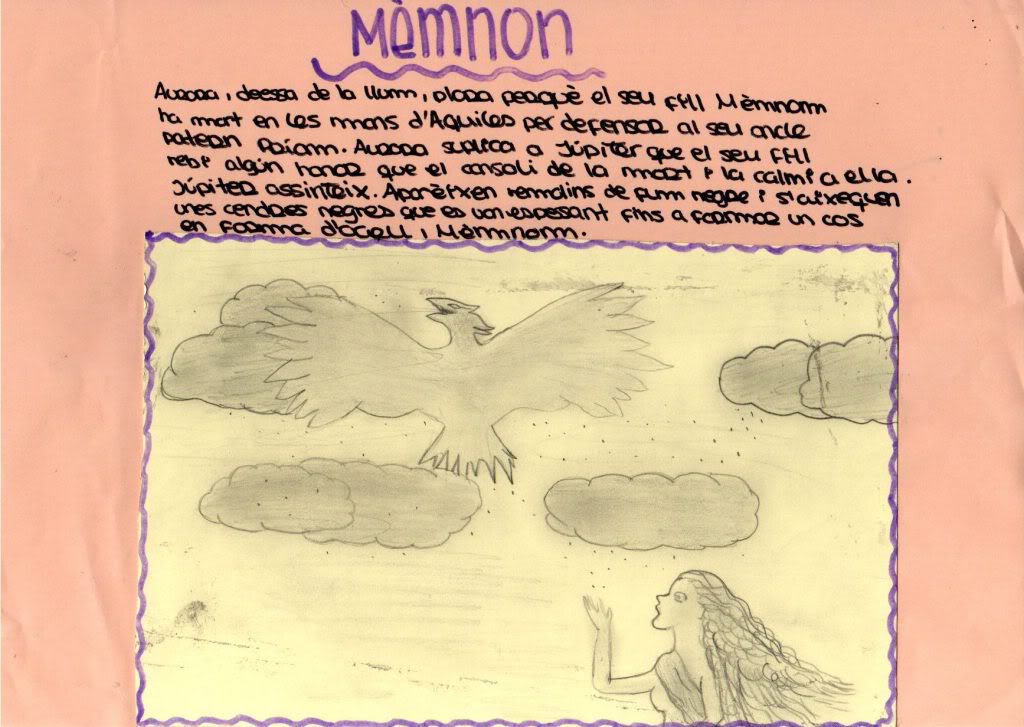 Mèmnon
Aurora, deessa de la llum, plora perquè el seu fill Mèmnom
ha mort en les mans d'Aquiles per defensar al seu oncle
patern Príam. Aurora suplica a Júpiter que el seu fill
rebi algún honor que el consoli de la mort i la calmi a ella.
Júpiter assinteix. Aparèixen remolins de fum negre i s'aixequen
unes cendres negres que es van espesant fins a formar un cos
en forma d'ocell, Mèmnom.